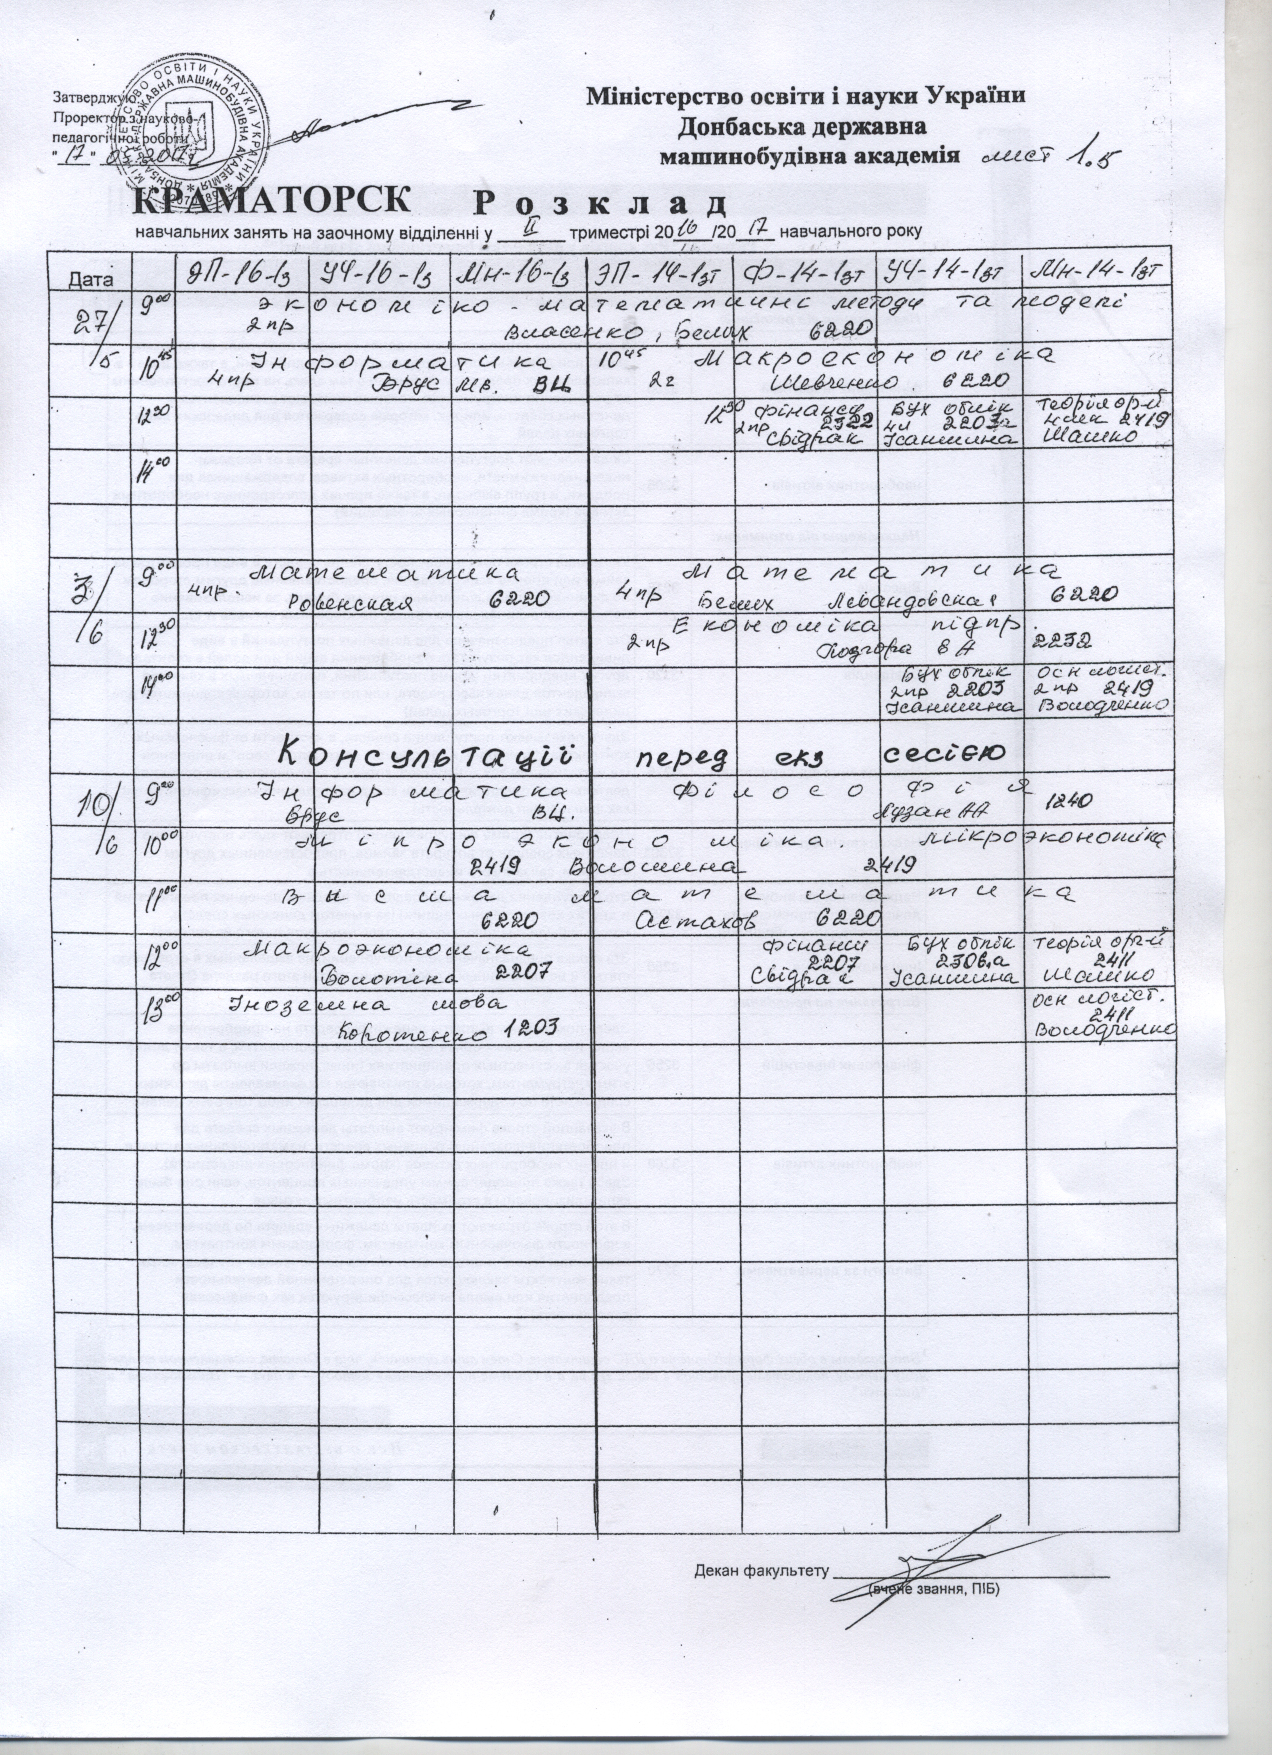 Затверджую
Проректор з науково-
педагогічної роботи
"17" 05 2017
МІНІСТЕРСТВО ОСВІТИ І НАУКИ УКРАЇНИ
ДОНБАСЬКА ДЕРЖАВНА МАШИНОБУДІВНА АКАДЕМІЯ
Міністерство освіти і науки України
Донбаська державна
машинобудівна академія лист 1.5
КРАМАТОРСК Р о з к л а д
навчальних занять на заочному відділенні у II триместрі 2016/2017 навчального року
Дата ЭП-16-1з УЧ-16-1з Мн-16-1з ЭП-14-1зт Ф-14-1зт УЧ-14-1зт Мн-14-1зт
27/5 9⁰⁰ Экономіко-математичні методи та моделі
2пр Власенко, Белих 6220
10⁴⁵ Інформатика 10⁴⁵ Макроекономіка
4пр Брус М.В. ВЦ 2г Шевченко. 6220
12³⁰ 12³⁰ фінансы БУХ облік теорія ор-й
2пр 2322 4л 2203а 4лек 2419
Свідрак Ісаншина Шашко
14⁰⁰
3/6 9⁰⁰ Математика Математика
4пр. Ровенская 6220 4пр Белих Левандовская 6220
12³⁰ Економіка підпр.
2пр Подгора ЕА 2232
14⁰⁰ БУХ облік Осн логіст.
2пр 2203 2пр 2419
Ісаншина Володченко
Консультації перед екз сесією
10/6 9⁰⁰ Інформатика Філософія
Брус ВЦ. Лузан АА 1240
10⁰⁰ Мікроэкономіка. Мікроэкономіка
2419 Волошина 2419
11⁰⁰ Высша математика
6220 Астахов 6220
12⁰⁰ Макроэкономіка фінанси БУХ облік теорія орг-й
Болотіна 2207 2207 2306а 2411
Свідрак Ісаншина Шашко
13⁰⁰ Іноземна мова Осн логіст.
Коротенко 1203 2411
Володченко
Декан факультету
(вчене звання, ПІБ)